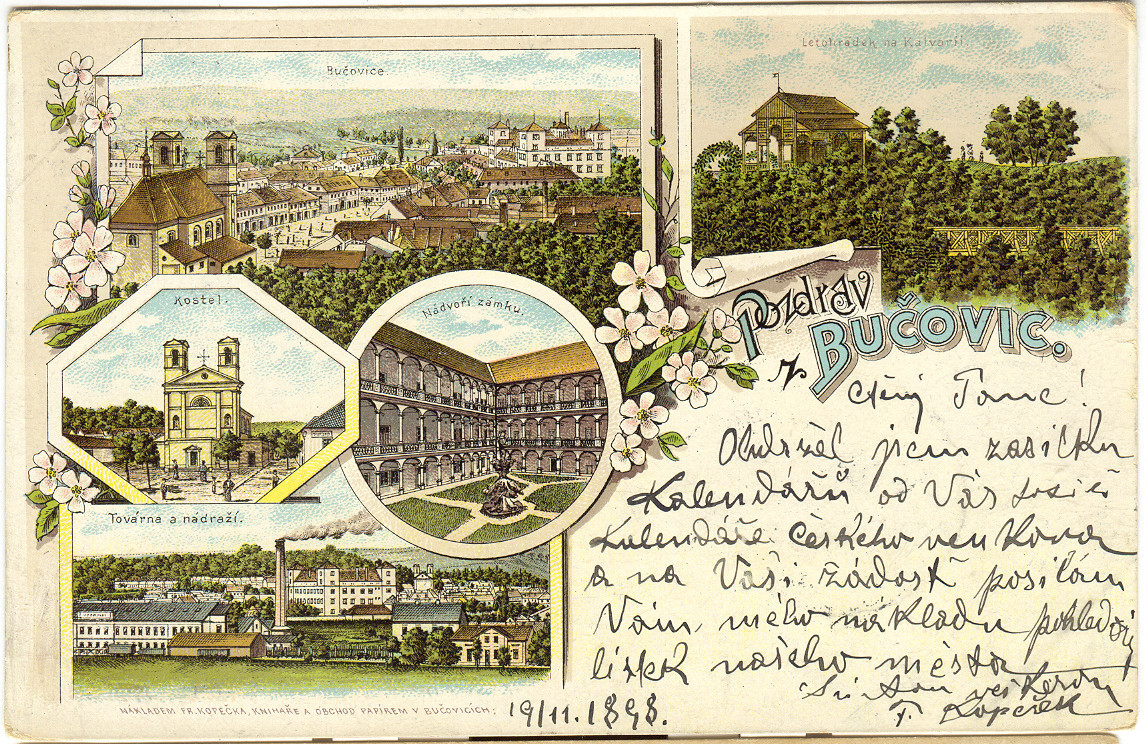 Bučovice.
Letohrádek na Kalvarii.
Kostel.
Nádvoří zámku.
Pozdrav
z BUČOVIC.
Továrna a nádraží.
Ctěný Pane!
Obdržel jsem zasilku
Kalendářů od Vás
Kalendáře Českého venkova
a na Vaši žádost posílám
Vám mého nákladu pohledový
lístek našeho města
F. Kopeček
NÁKLADEM FR. KOPEČKA, KNIHAŘE A OBCHOD PAPÍREM V BUČOVICÍCH.
19/11. 1898.